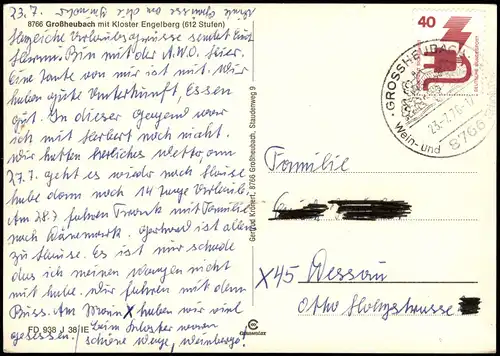 23.7.
8766 Großheubach mit Kloster Engelberg (612 Stufen)
Herzliche Urlaubsgrüsse sendet Euch
Bin mit der A.W.O. hier.
Eine Tante von mir ist mit. Wir
haben gute Unterkunft, Essen
gut. In dieser Gegend war
ich mit Herbert noch nicht.
Wir hatten herliches Wetter, am
27.7. geht es wieder nach Hause
habe dann noch 14 Tage Urlaub.
Am 28.7 fahren Frank mit Familie
nach Dänemark. Gerhard ist allein
zu Hause. Es ist nur schade
das ich meinen Wagen nicht
mit habe. Wir fuhren mit dem
Buss. Am Main X haben wir viel
gesessen.
beim Kloster waren
schöne Wege, Weinberge!
FD 938 J 38 IE
Gertrud Krönert, 8766 Großheubach, Staudenweg 9
40
GROSSHEUBACH
23.7.76-17
Wein- und
8766
Familie
X45 Dessau
Otto Holzstrasse